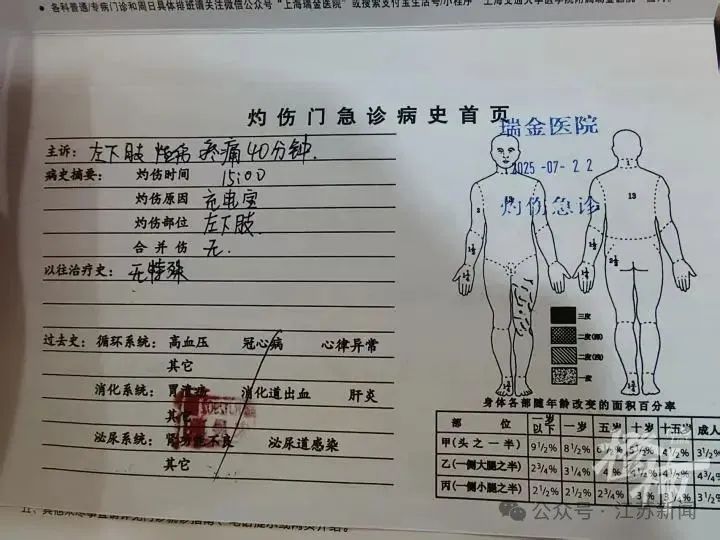 各科普通/专病门诊和周日具体排班请关注微信公众号“上海瑞金医院”或搜索支付宝生活号/小程序“上海交通大学医学院附属瑞金医院”
灼伤门急诊病史首页
瑞金医院
2025-07-22
灼伤急诊
主诉: 左下肢 烧伤 疼痛 40分钟.
病史摘要: 灼伤时间 15:00
灼伤原因 充电宝
灼伤部位 左下肢.
合并伤 无.
以往治疗史: 无特殊
过去史: 循环系统: 高血压 冠心病 心律异常
其它
消化系统: 胃溃疡 消化道出血 肝炎
其它
泌尿系统: 肾功能不良 泌尿道感染
其它
13
13
1½
1½
2½
三度
二度(深)
二度(浅)
一度
身体各部随年龄改变的面积百分率
部 位 一岁以下 一岁 五岁 十岁 十五岁 成人
甲(头之一半) 9½% 8½% 6½% 5½% 4½% 3½%
乙(一侧大腿之半) 2¾% 3¼% 4% 4½% 4¾%
丙(一侧小腿之半) 2½% 2½% 2¾% 3% 3¼% 3½%
公众号·江苏新闻